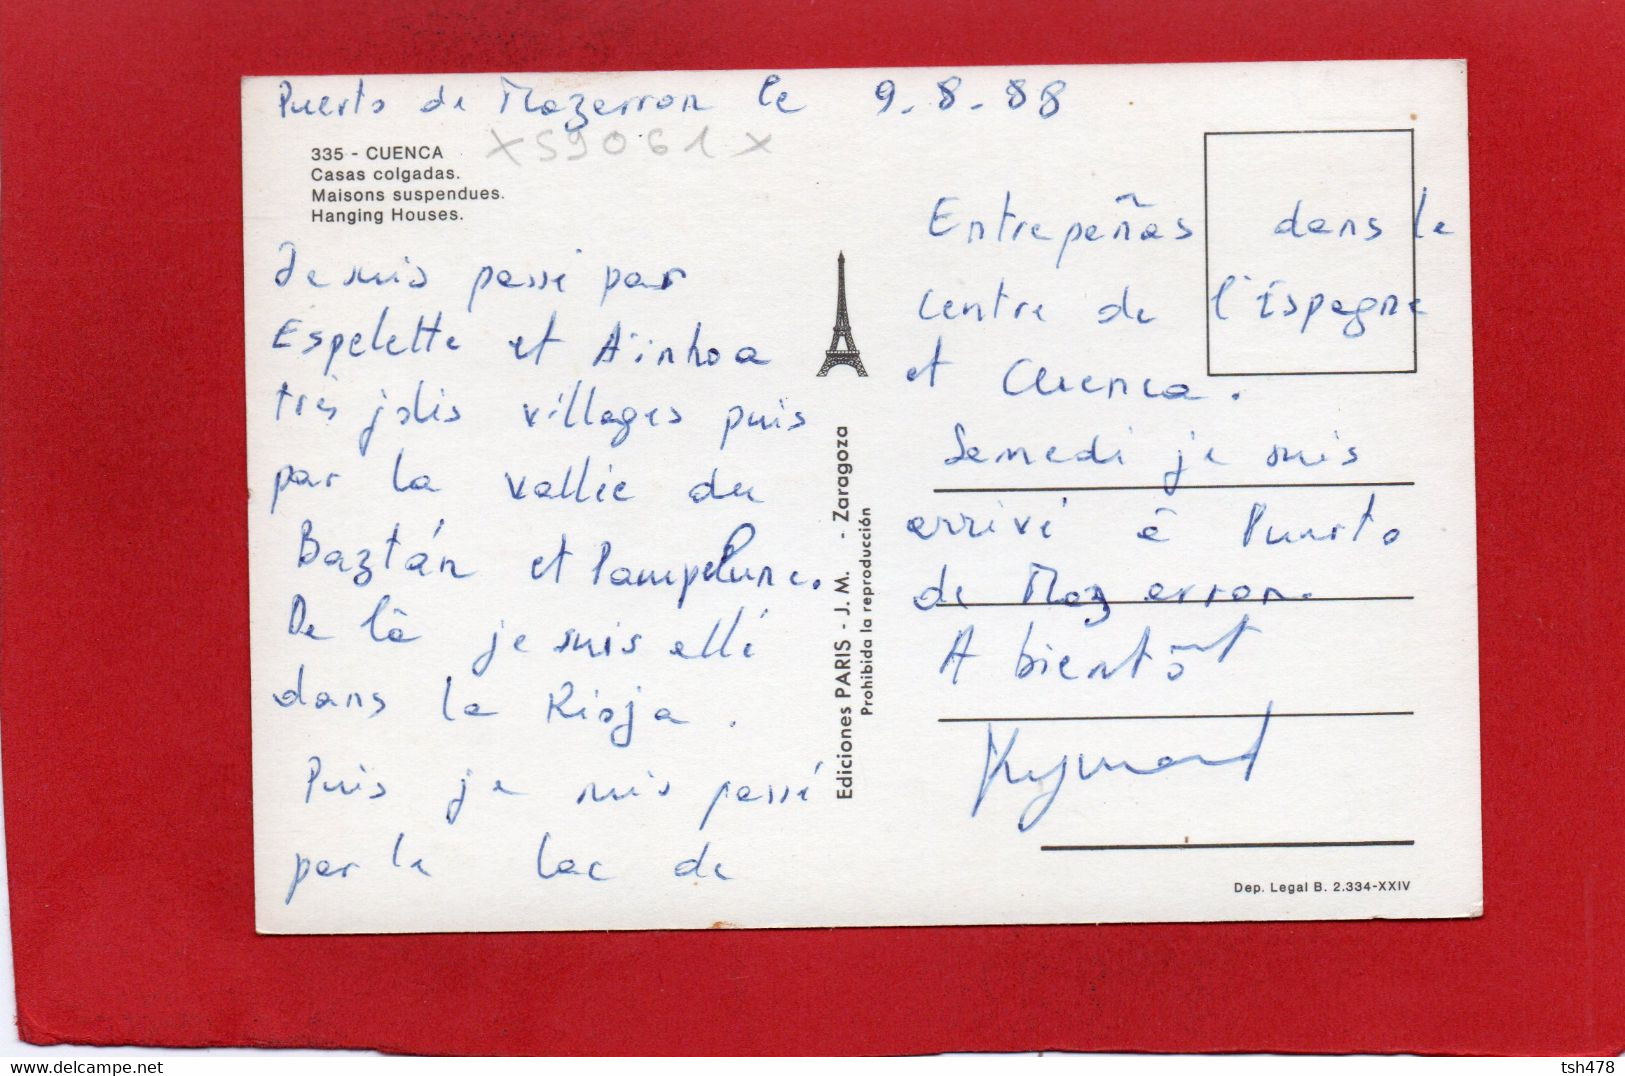 Puerto de Mazerron le 9.8.88
XS9061X
335 - CUENCA
Casas colgadas.
Maisons suspendues.
Hanging Houses.
Je suis passé par
Espelette et Aïnhoa
très jolis villages puis
par la vallée du
Baztán et Pampelune.
De là je suis allé
dans la Rioja.
Puis je suis passé
par le lac de
Ediciones PARIS - J. M. - Zaragoza
Prohibida la reproducción
Entrepeñas dans le
centre de l'Espagne
et Cuenca.
Samedi je suis
arrivé à Puerto
de Mazerron.
A bientôt
Raymond
Dep. Legal B. 2.334-XXIV
tsh478